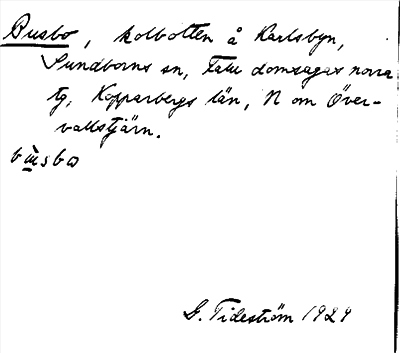 Busbo, kolbotten å Karlsbyn,
Sundborns sn, Falu domsagas norra
tg, Kopparbergs län, N om Över-
vallstjärn.
bùsbo
G. Tideström 1929